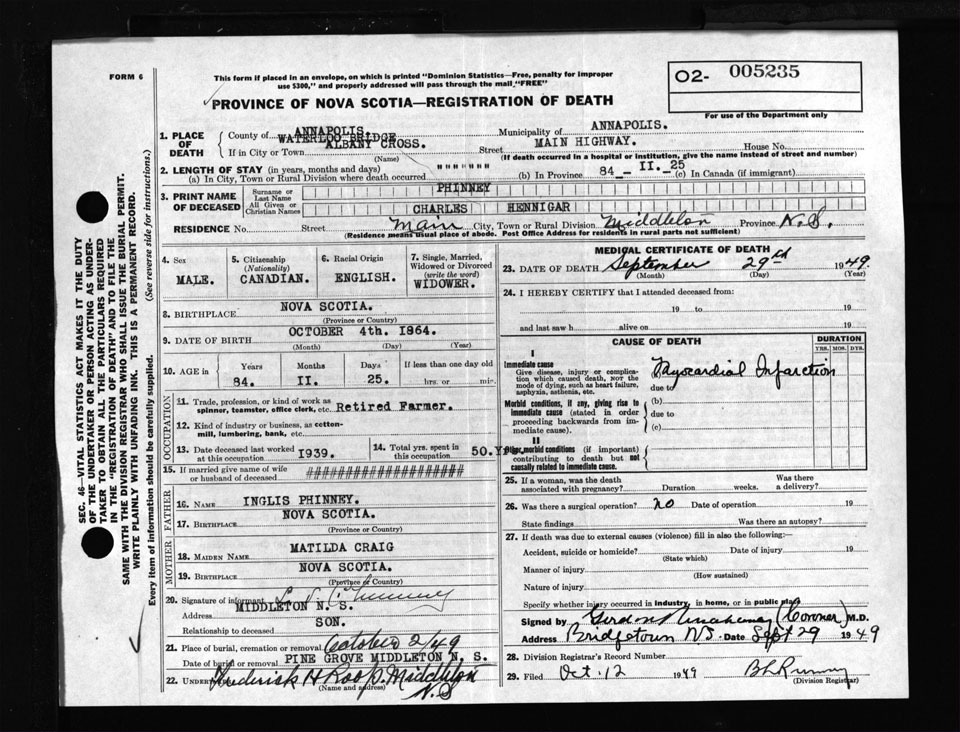 FORM 6
This form if placed in an envelope, on which is printed "Dominion Statistics—Free, penalty for improper
use $300," and properly addressed will pass through the mail "FREE"
O2- 005235
For use of the Department only
PROVINCE OF NOVA SCOTIA—REGISTRATION OF DEATH
1. PLACE OF DEATH
County of ANNAPOLIS Municipality of ANNAPOLIS.
WATERLOO BRIDGE
If in City or Town ALBANY CROSS. Street MAIN HIGHWAY. House No.
(Name) (If death occurred in a hospital or institution, give the name instead of street and number)
2. LENGTH OF STAY (in years, months and days)
(a) In City, Town or Rural Division where death occurred """"""" (b) In Province 84 _ II. _ 25 (c) In Canada (if immigrant)
3. PRINT NAME OF DECEASED
Surname or Last Name PHINNEY
All Given or Christian Names CHARLES HENNIGAR
RESIDENCE No. Street Main City, Town or Rural Division Middleton Province N.S.
(Residence means usual place of abode. Post Office Address for residents in rural parts not sufficient)
4. Sex
MALE.
5. Citizenship
(Nationality)
CANADIAN.
6. Racial Origin
ENGLISH.
7. Single, Married,
Widowed or Divorced
(write the word)
WIDOWER.
8. BIRTHPLACE NOVA SCOTIA.
(Province or Country)
9. DATE OF BIRTH OCTOBER 4th. I864.
(Month) (Day) (Year)
10. AGE in Years Months Days If less than one day old
84. II. 25. hrs. or min.
OCCUPATION
11. Trade, profession, or kind of work as
spinner, teamster, office clerk, etc. Retired Farmer.
12. Kind of industry or business, as cotton-
mill, lumbering, bank, etc.
13. Date deceased last worked
at this occupation I939.
14. Total yrs. spent in
this occupation 50.
15. If married give name of wife
or husband of deceased ####################
FATHER
16. NAME INGLIS PHINNEY.
17. BIRTHPLACE NOVA SCOTIA.
(Province or Country)
MOTHER
18. MAIDEN NAME MATILDA CRAIG
19. BIRTHPLACE NOVA SCOTIA.
(Province or Country)
20. Signature of informant
Address MIDDLETON N. S.
Relationship to deceased SON.
21. Place of burial, cremation or removal October 2/49
Date of burial or removal PINE GROVE MIDDLETON N. S.
22. Undertaker Frederick H Roop. Middleton
(Name and address) N.S
MEDICAL CERTIFICATE OF DEATH
23. DATE OF DEATH September 29th 1949.
(Month) (Day) (Year)
24. I HEREBY CERTIFY that I attended deceased from:
19 to 19
and last saw h alive on 19
CAUSE OF DEATH
DURATION
YRS. MOS. DYS.
I
Immediate cause
Give disease, injury or complica-
tion which caused death, NOT the
mode of dying, such as heart failure,
asphyxia, asthenia, etc.
Myocardial Infarction
due to
Morbid conditions, if any, giving rise to
immediate cause (stated in order
proceeding backwards from im-
mediate cause).
(b)
due to
(c)
II
Other morbid conditions (if important)
contributing to death but not
causally related to immediate cause.
25. If a woman, was the death
associated with pregnancy? Duration weeks. Was there
a delivery?
26. Was there a surgical operation? no Date of operation 19
State findings Was there an autopsy?
27. If death was due to external causes (violence) fill in also the following:
Accident, suicide or homicide? Date of injury 19
(State which)
Manner of injury
(How sustained)
Nature of injury
Specify whether injury occurred in industry, in home, or in public place
Signed by (Coroner) M.D.
Address Bridgetown NS. Date Sept 29 1949
28. Division Registrar's Record Number
29. Filed Oct. 12 1949
(Division Registrar)
SEC. 46—VITAL STATISTICS ACT MAKES IT THE DUTY
OF THE UNDERTAKER OR PERSON ACTING AS UNDER-
TAKER TO OBTAIN ALL THE PARTICULARS REQUIRED
IN THE "REGISTRATION OF DEATH" AND TO FILE THE
SAME WITH THE DIVISION REGISTRAR WHO SHALL ISSUE THE BURIAL PERMIT.
WRITE PLAINLY WITH UNFADING INK. THIS IS A PERMANENT RECORD.
Every item of information should be carefully supplied. (See reverse side for instructions.)